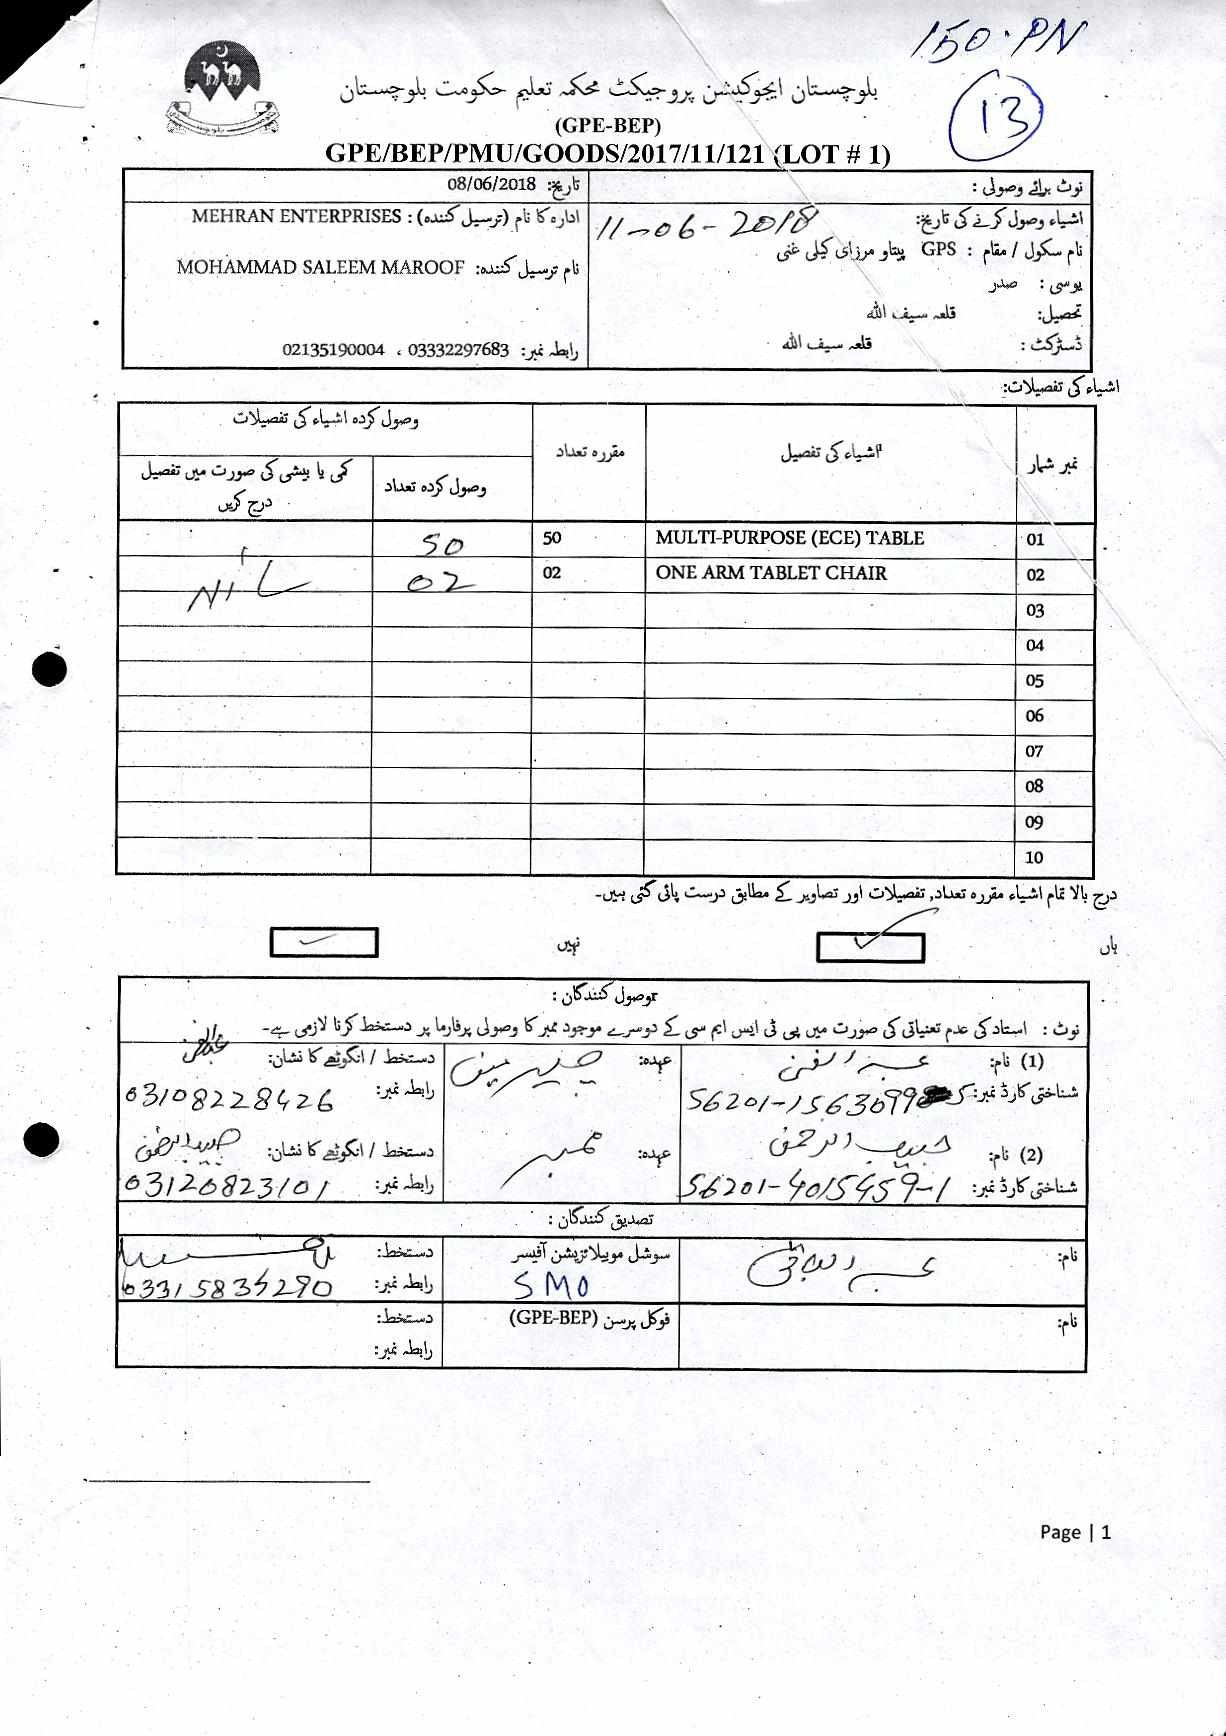 150.PN
13
بلوچستان ایجوکیشن پروجیکٹ محکمہ تعلیم حکومت بلوچستان
(GPE-BEP)
GPE/BEP/PMU/GOODS/2017/11/121 (LOT # 1)
نوٹ برائے وصولی :
تاریخ: 08/06/2018
اشیاء وصول کرنے کی تاریخ: 11-06-2018
ادارہ کا نام (ترسیل کنندہ) : MEHRAN ENTERPRISES
نام سکول / مقام : GPS پیتاو مرزای کیلی غنی
نام ترسیل کنندہ: MOHAMMAD SALEEM MAROOF
یوسی : صدر
تحصیل: قلعہ سیف اللہ
ڈسٹرکٹ : قلعہ سیف اللہ
رابطہ نمبر: 03332297683 ، 02135190004
اشیاء کی تفصیلات:
نمبر شمار
اشیاء کی تفصیل
مقررہ تعداد
وصول کردہ اشیاء کی تفصیلات
وصول کردہ تعداد
کمی یا بیشی کی صورت میں تفصیل درج کریں
01 MULTI-PURPOSE (ECE) TABLE 50 50
02 ONE ARM TABLET CHAIR 02 02 NiL
03
04
05
06
07
08
09
10
درج بالا تمام اشیاء مقررہ تعداد, تفصیلات اور تصاویر کے مطابق درست پائی گئی ہیں۔
ہاں ✓ نہیں ✓
وصول کنندگان :
نوٹ : استاد کی عدم تعنیاتی کی صورت میں پی ٹی ایس ایم سی کے دوسرے موجود ممبر کا وصولی پرفارما پر دستخط کرنا لازمی ہے۔
(1) نام: عبدالغنی عہدہ: چیئرمین دستخط / انگوٹھے کا نشان:
شناختی کارڈ نمبر: 56201-1563699 رابطہ نمبر: 03108228426
(2) نام: حبیب الرحمن عہدہ: ممبر دستخط / انگوٹھے کا نشان: حبیب الرحمن
شناختی کارڈ نمبر: 56201-4015459-1 رابطہ نمبر: 03120823101
تصدیق کنندگان :
نام: عبدالباقی سوشل موبیلائزیشن آفیسر دستخط:
SMO رابطہ نمبر: 03315835290
نام: فوکل پرسن (GPE-BEP) دستخط:
رابطہ نمبر:
Page | 1